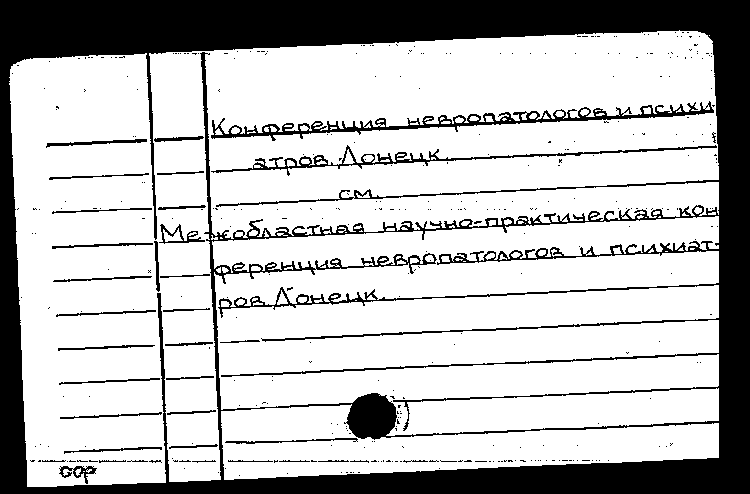 Конференция невропатологов и психи
атров. Донецк.
см.
Межобластная научно-практическая кон
ференция невропатологов и психиат-
ров. Донецк.
оор